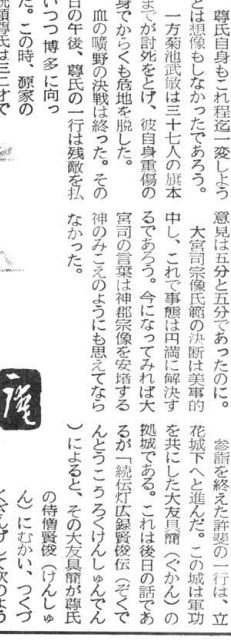 尊氏自身もこれ程迄一変しよう
とは想像もしなかったであろう。
一方菊池武敏は三十七人の旗本
までが討死をとげ、彼自身重傷の
身でからくも危地を脱した。
血の曠野の決戦は終った。その
日の午後、尊氏の一行は残敵を払
いつつ博多に向っ
た。この時、源家の
尊氏は三二才で
意見は五分と五分であったのに。
大宮司宗像氏範の決断は美事的
中し、これで事態は円満に解決す
るであろう。今になってみれば大
宮司の言葉は神郡宗像を安堵する
神のみこえのようにも思えてなら
なかった。
参詣を終えた許斐の一行は、立
花城下へと進んだ。この城は軍功
を共にした大友具簡(ぐかん)の
拠城である。これは後日の話であ
るが「続伝灯広録賢俊伝(ぞくで
んとうこうろくけんしゅんでん
)によると、その大友具簡が尊氏
の侍僧賢俊(けんしゅ
ん)にむかい、つくづ
くざんげして次のよう